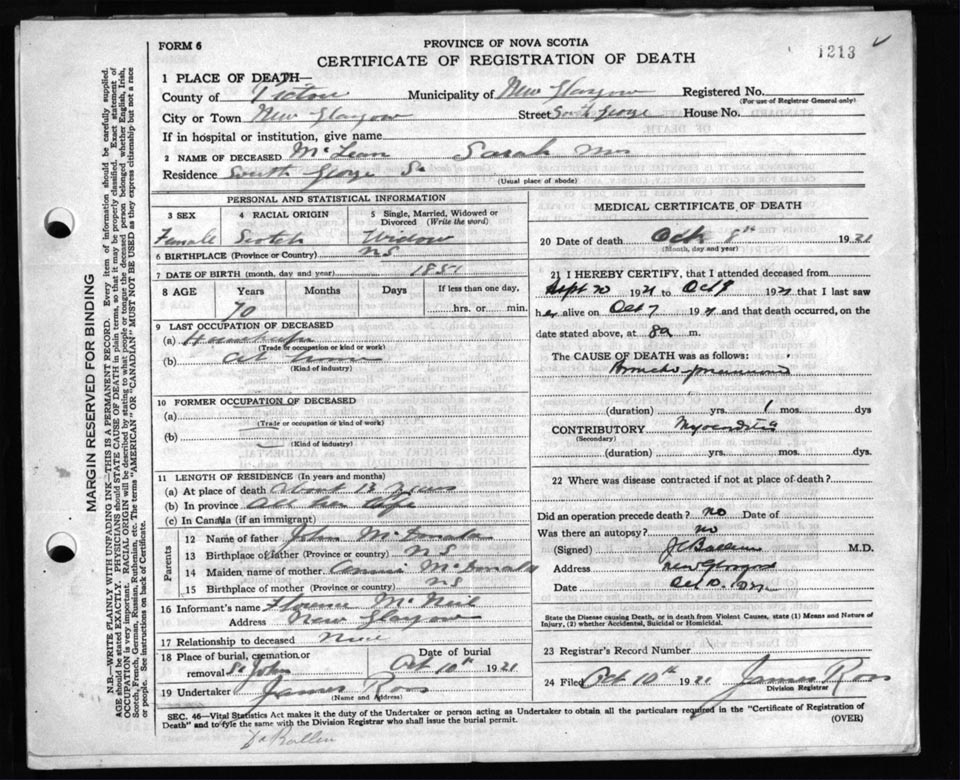 FORM 6
PROVINCE OF NOVA SCOTIA
CERTIFICATE OF REGISTRATION OF DEATH
1213
1 PLACE OF DEATH—
County of Pictou Municipality of New Glasgow Registered No.
(For use of Registrar General only)
City or Town New Glasgow Street South George House No.
If in hospital or institution, give name
2 NAME OF DECEASED McLean Sarah Mrs
Residence South George St
(Usual place of abode)
PERSONAL AND STATISTICAL INFORMATION
3 SEX 4 RACIAL ORIGIN 5 Single, Married, Widowed or Divorced (Write the word)
Female Scotch Widow
6 BIRTHPLACE (Province or Country) NS
7 DATE OF BIRTH (month, day and year) 1851
8 AGE Years Months Days If less than one day,
70 hrs. or min.
9 LAST OCCUPATION OF DECEASED
(a) Housekeeper
(Trade or occupation or kind or work)
(b) At home
(Kind of industry)
10 FORMER OCCUPATION OF DECEASED
(a)
(Trade or occupation or kind or work)
(b)
(Kind of industry)
11 LENGTH OF RESIDENCE (In years and months)
(a) At place of death About 13 years
(b) In province All her life
(c) In Canada (if an immigrant)
Parents
12 Name of father John McDonald
13 Birthplace of father (Province or country) NS
14 Maiden name of mother Annie McDonald
15 Birthplace of mother (Province or country) NS
16 Informant's name Florence McNeil
Address New Glasgow
17 Relationship to deceased Niece
18 Place of burial, cremation or removal St John Date of burial Oct 10th 1921
19 Undertaker James Ross
(Name and Address)
MEDICAL CERTIFICATE OF DEATH
20 Date of death Oct 8th 1921
(Month, day and year)
21 I HEREBY CERTIFY, that I attended deceased from
Sept 20 1921 to Oct 8 1921 that I last saw
her alive on Oct 7 1921 and that death occurred, on the
date stated above, at 8a m.
The CAUSE OF DEATH was as follows:
Broncho-pneumonia
(duration) yrs. 1 mos. dys
CONTRIBUTORY Myocarditis
(Secondary)
(duration) yrs. mos. dys.
22 Where was disease contracted if not at place of death?
Did an operation precede death? no Date of
Was there an autopsy? no
(Signed) M.D.
Address New Glasgow
Date Oct 10. 1921
State the Disease causing Death, or in death from Violent Causes, state (1) Means and Nature of
Injury, (2) whether Accidental, Suicidal or Homicidal.
23 Registrar's Record Number
24 Filed Oct 10th 1921 James Ross
Division Registrar
SEC. 46—Vital Statistics Act makes it the duty of the Undertaker or person acting as Undertaker to obtain all the particulars required in the "Certificate of Registration of
Death" and to file the same with the Division Registrar who shall issue the burial permit. (OVER)
MARGIN RESERVED FOR BINDING
N.B.—WRITE PLAINLY WITH UNFADING INK—THIS IS A PERMANENT RECORD. Every item of information should be carefully supplied.
AGE should be stated EXACTLY. PHYSICIANS should STATE CAUSE OF DEATH in plain terms, so that it may be properly classified. Exact statement of
OCCUPATION is very important. RACIAL ORIGIN will be described by stating to what people or tongue the deceased person belonged whether English, Irish,
Scotch, French, German, Russian, Ruthenian, etc. The terms "AMERICAN" OR "CANADIAN" MUST NOT BE USED as they express citizenship but not a race
or people. See instructions on back of Certificate.